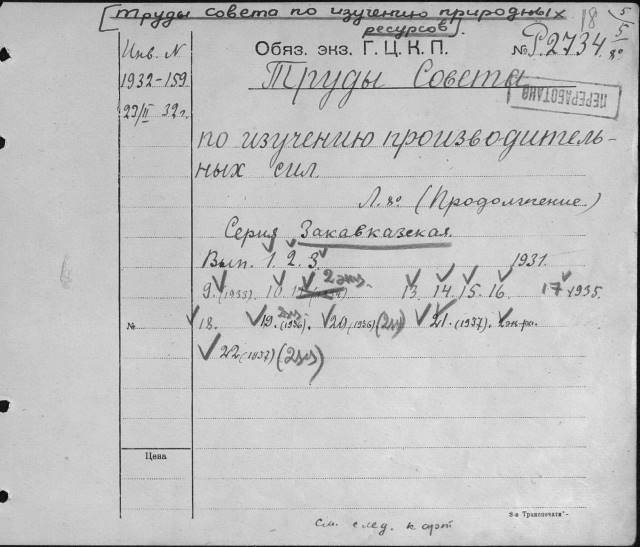 [Труды совета по изучению природных
ресурсов].
18 5/5
Инв. N Обяз. экз. Г. Ц. К. П. № Р.2734. 8°
1932-159 Труды Совета
23/II 32 г. ПЕРЕРАБОТАНО
по изучению производитель-
ных сил.
Л. 8° (Продолжение.)
Серия Закавказская.
Вып. 1. 2. 3. 1931.
9. (1933). 10. 2 экз. 13. 14. 15. 16. 17 1935.
№ 18. 19. (1936). 2 экз. 20 (1936) 21. (1937). 2 экз.
22 (1937) (2 экз)
Цена
См. след. карт
3-я Транспечати"-